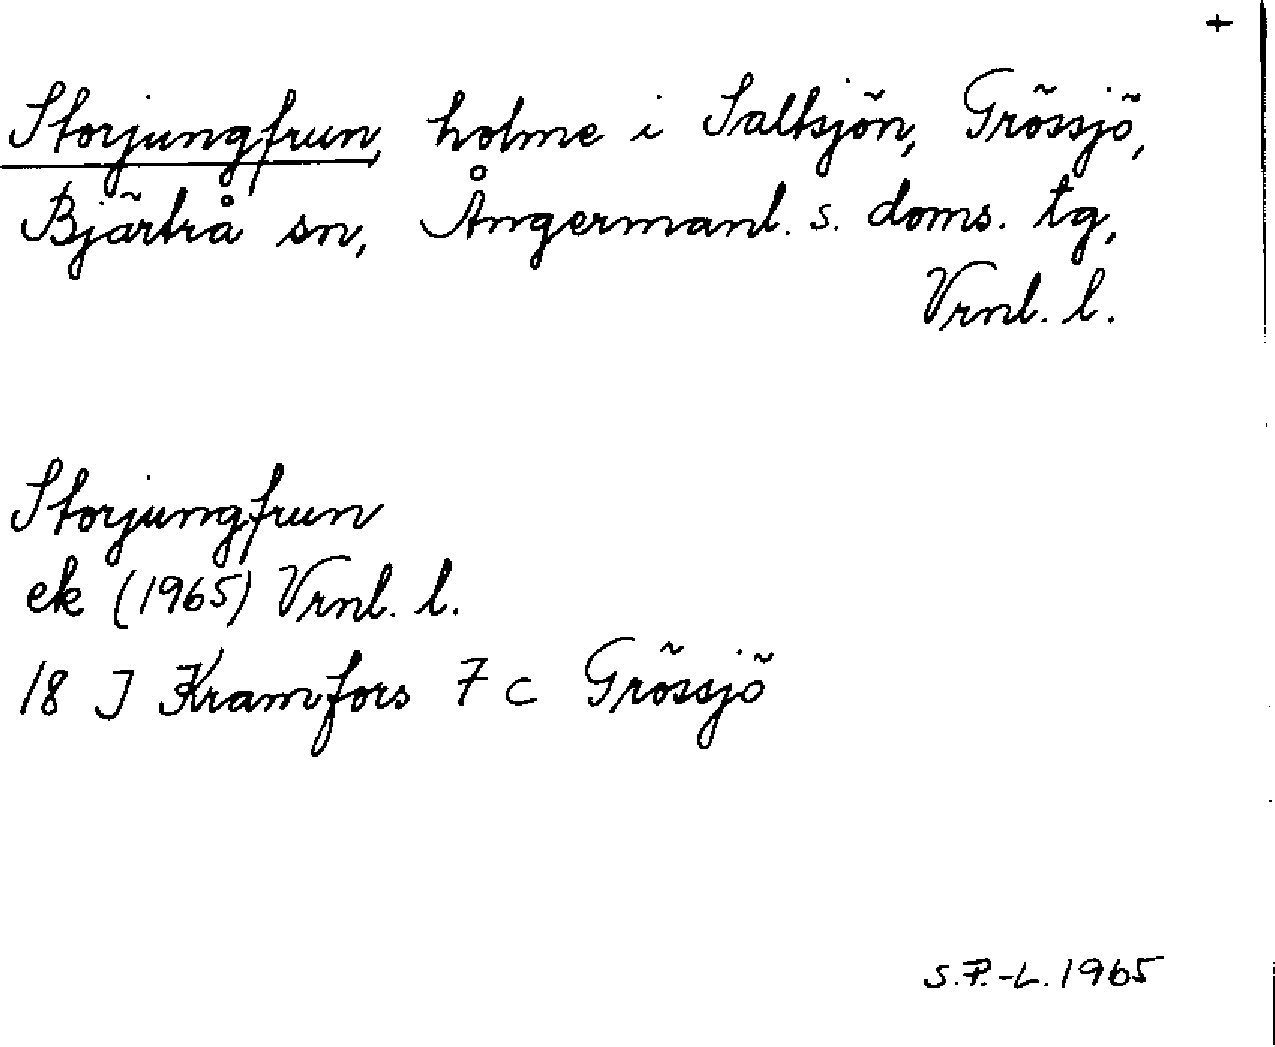 +
Storjungfrun, holme i Saltsjön, Grössjö,
Bjärtrå sn, Ångermanl. s. doms. tg,
Vrnl. l.
Storjungfrun
ek (1965) Vrnl. l.
18 J Kramfors 7 c Grössjö
S.P.-L. 1965